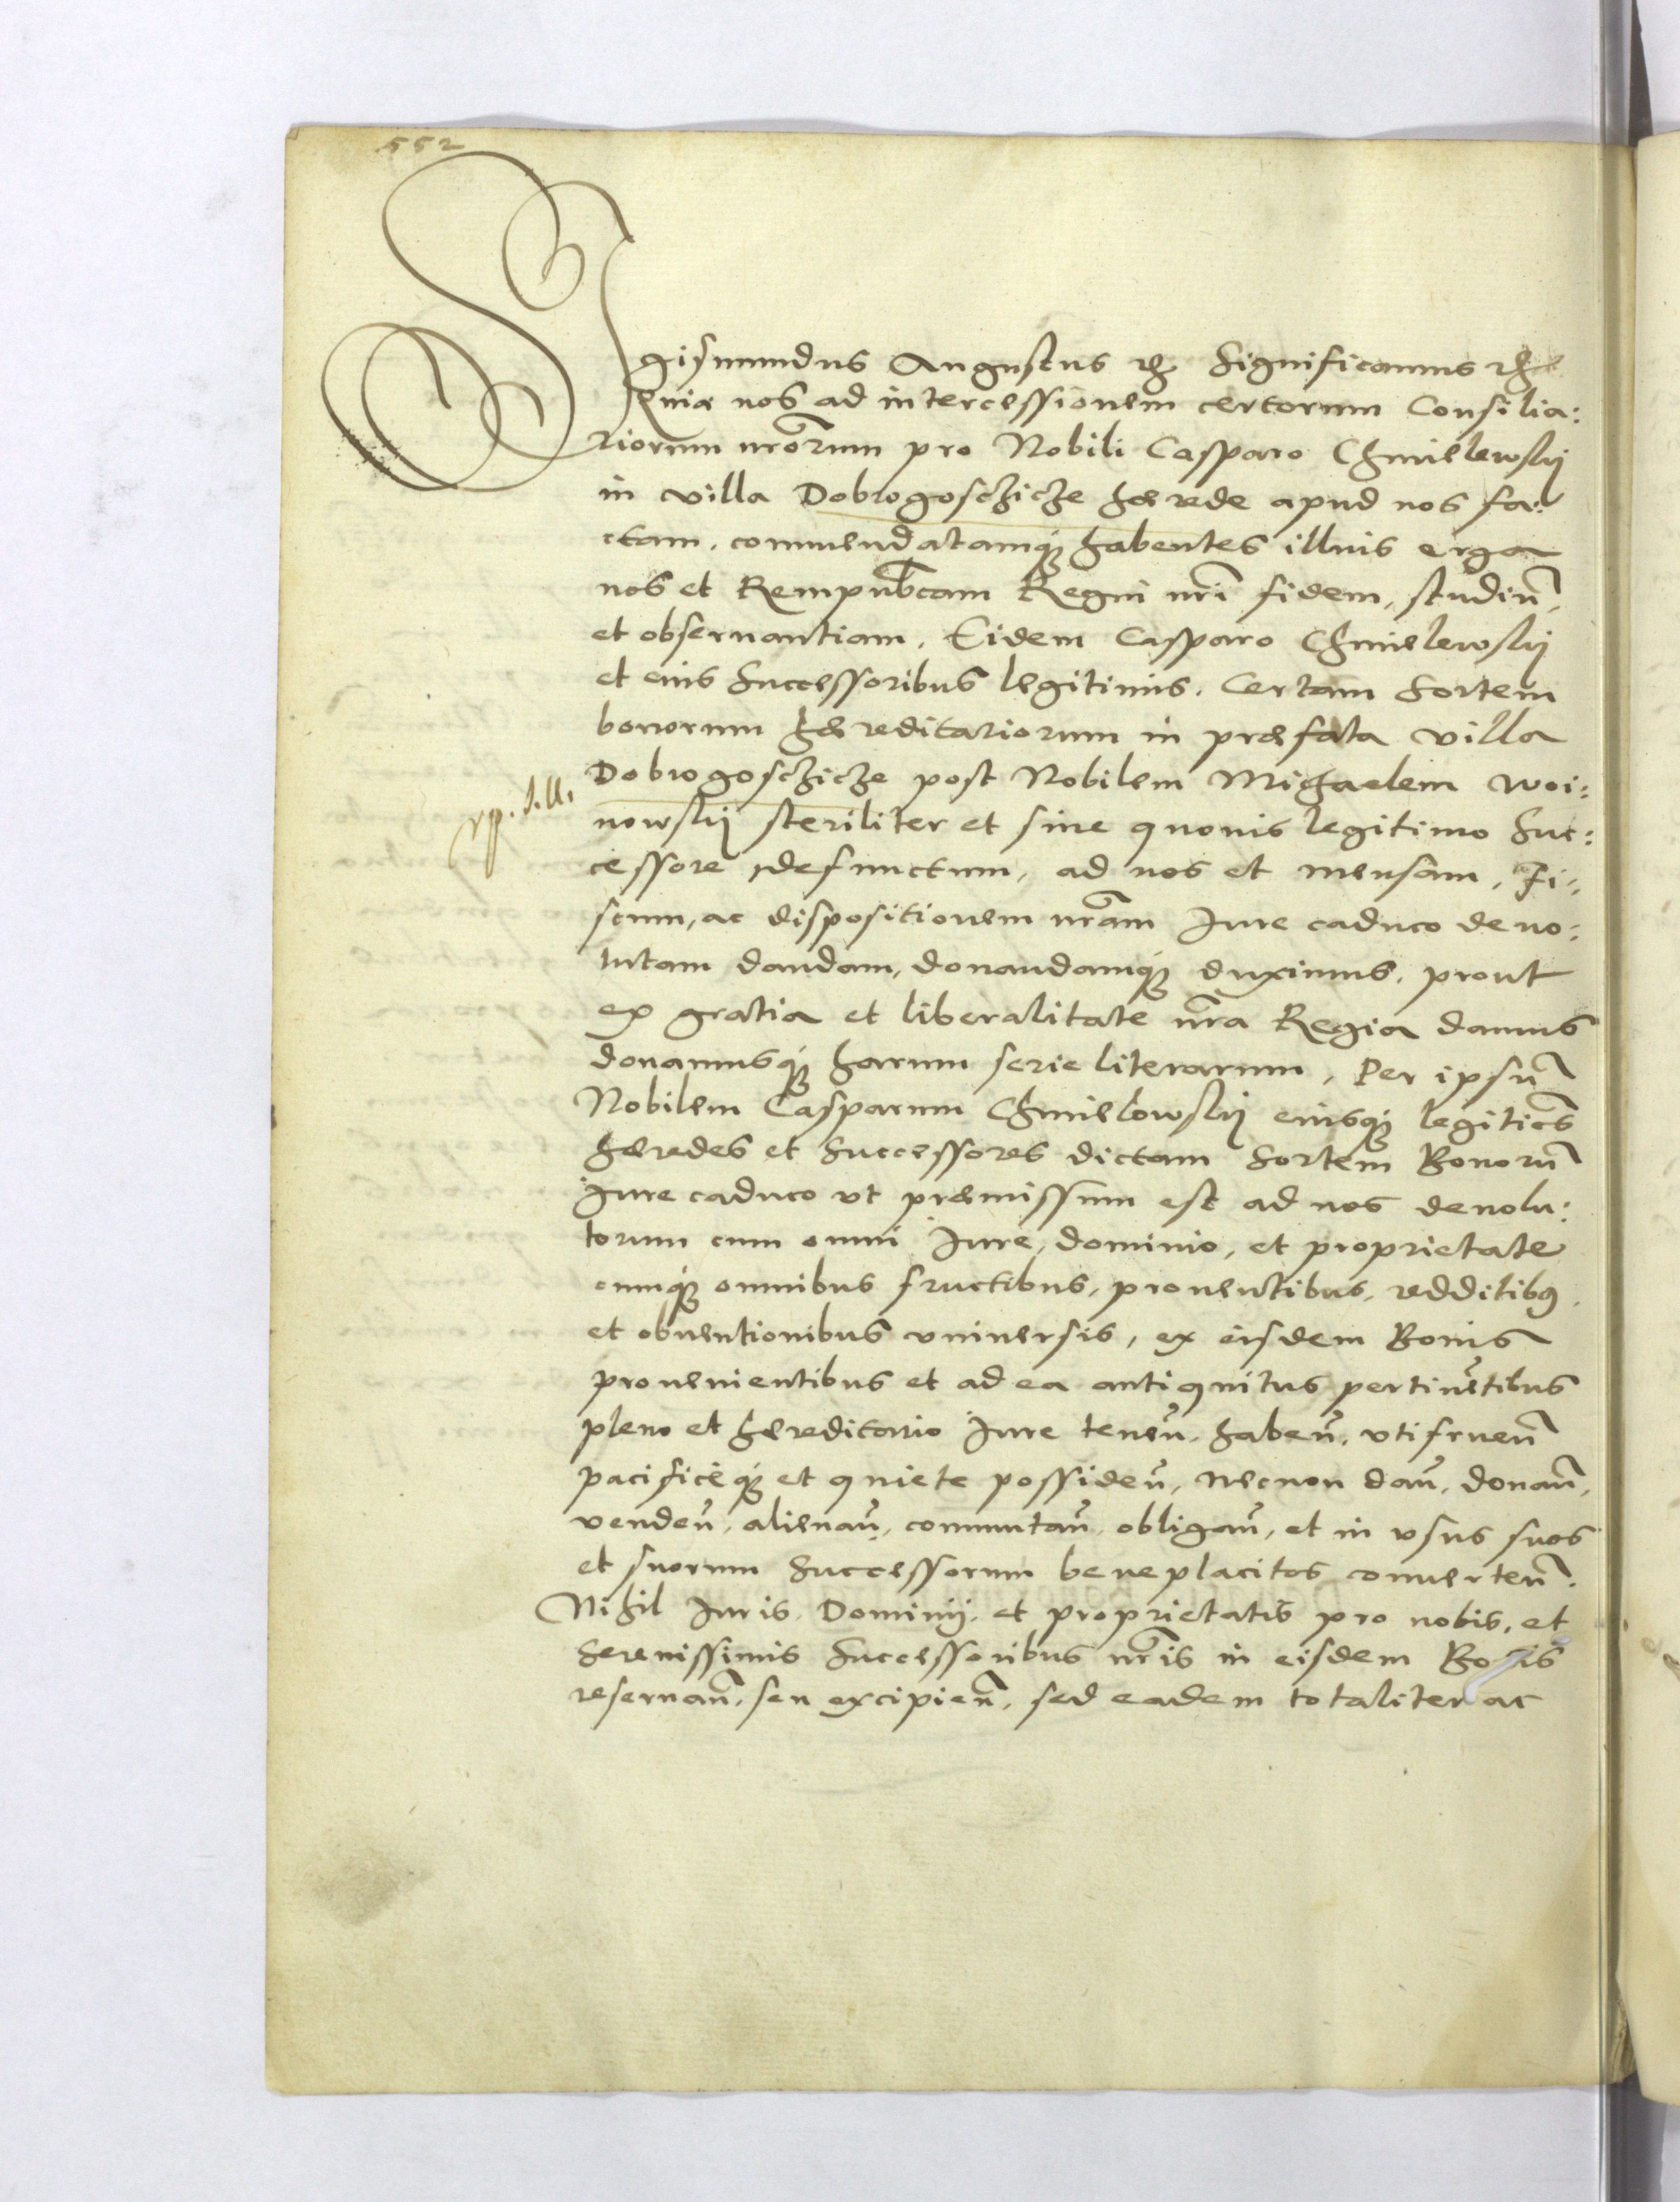 552
Sigismundus Augustus etc Significamus etc
Quia nos ad intercessionem certorum Consilia:
riorum nrorum pro Nobili Casparo Chmielewskij
in villa Dobrogosczicze hærede apud nos fa:
ctam, commendatamq3 habentes illius erga
nos et Rempublcam Regni nri fidem, studiu,
et obseruantiam, Eidem Casparo Chmielewskij
et eius Successoribus legitimis, Certam Sortem
bonorum hæreditariorum in præfata villa
Dobrogosczicze post Nobilem Michaelem Woi:
nowskij steriliter et sine quouis legitimo Suc:
cessore defunctum, ad nos et mensam, Fi:
scum, ac dispositionem nram Jure caduco deuo:
lutam dandam, donandamq3 duximus, prout
ex gratia et liberalitate nra Regia damus
donamusq3 harum serie literarum, Per ipsu
Nobilem Casparum Chmielowskij eiusq3 legitios
hæredes et Successores dictam Sortem Bonoru
Jure caduco vt præmissum est ad nos deuolu:
torum cum omni Jure, dominio, et proprietate
cumq3 omnibus fructibus, prouentibus, redditib9
et obuentionibus vniuersis, ex eisdem Bonis
prouenientibus et ad ea antiquitus pertinetibus
pleno et hæreditario Jure teneñ, habeñ, vtifrueñ
pacificeq3 et quiete possideñ, necnon dañ, donañ,
vendeñ, alienañ, commutañ, obligañ, et in vsus suos
et suorum Successorum beneplacitos conuerteñ.
Nihil Juris, Dominij, et proprietatis pro nobis, et
Serenissimis Successoribus nris in eisdem Bonis
reseruañ, seu excipieñ, sed eadem totaliter ac